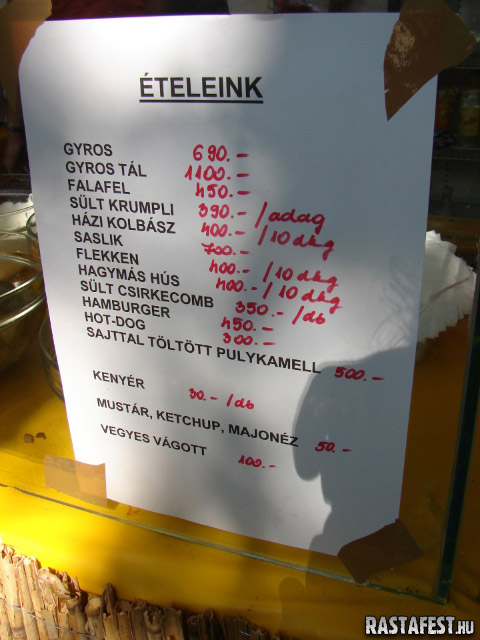 ÉTELEINK
GYROS 690.-
GYROS TÁL 1100.-
FALAFEL 450.-
SÜLT KRUMPLI 390.- /adag
HÁZI KOLBÁSZ 400.- /10 dkg
SASLIK 700.-
FLEKKEN 400.- /10 dkg
HAGYMÁS HÚS 400.- /10 dkg
SÜLT CSIRKECOMB 350.- /db
HAMBURGER 450.-
HOT-DOG 300.-
SAJTTAL TÖLTÖTT PULYKAMELL 500.-
KENYÉR 30.- /db
MUSTÁR, KETCHUP, MAJONÉZ 50.-
VEGYES VÁGOTT 100.-
RASTAFEST.HU